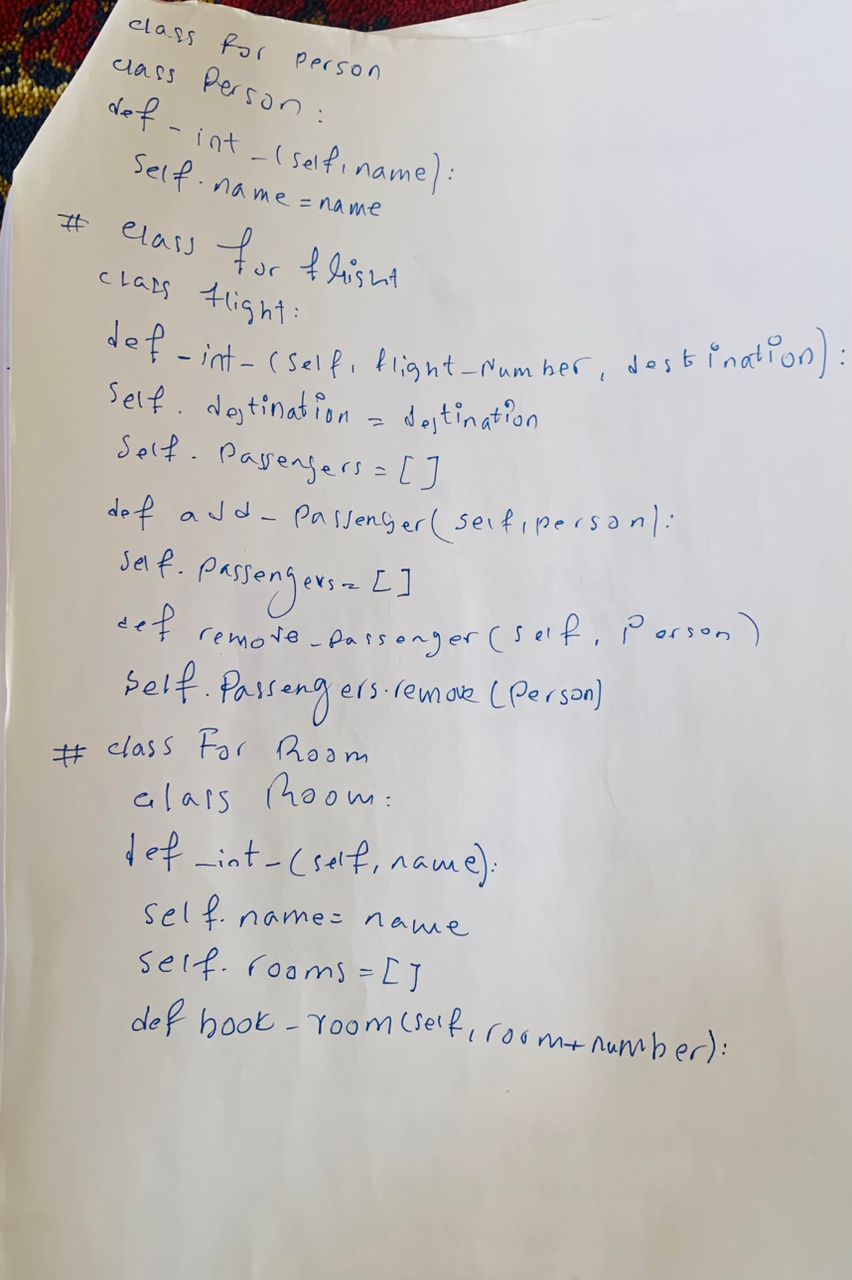 class for person
class Person:
def _int_(self, name):
self.name = name
# class for flight
class flight:
def _int_(self, flight_number, destination):
self. destination = destination
self. passengers = []
def add_passenger(self, person):
self. passengers = []
def remove_passenger(self, person)
self.passengers.remove(person)
# class For Room
class Room:
def _int_(self, name):
self. name = name
self. rooms = []
def book_room(self, room+number):